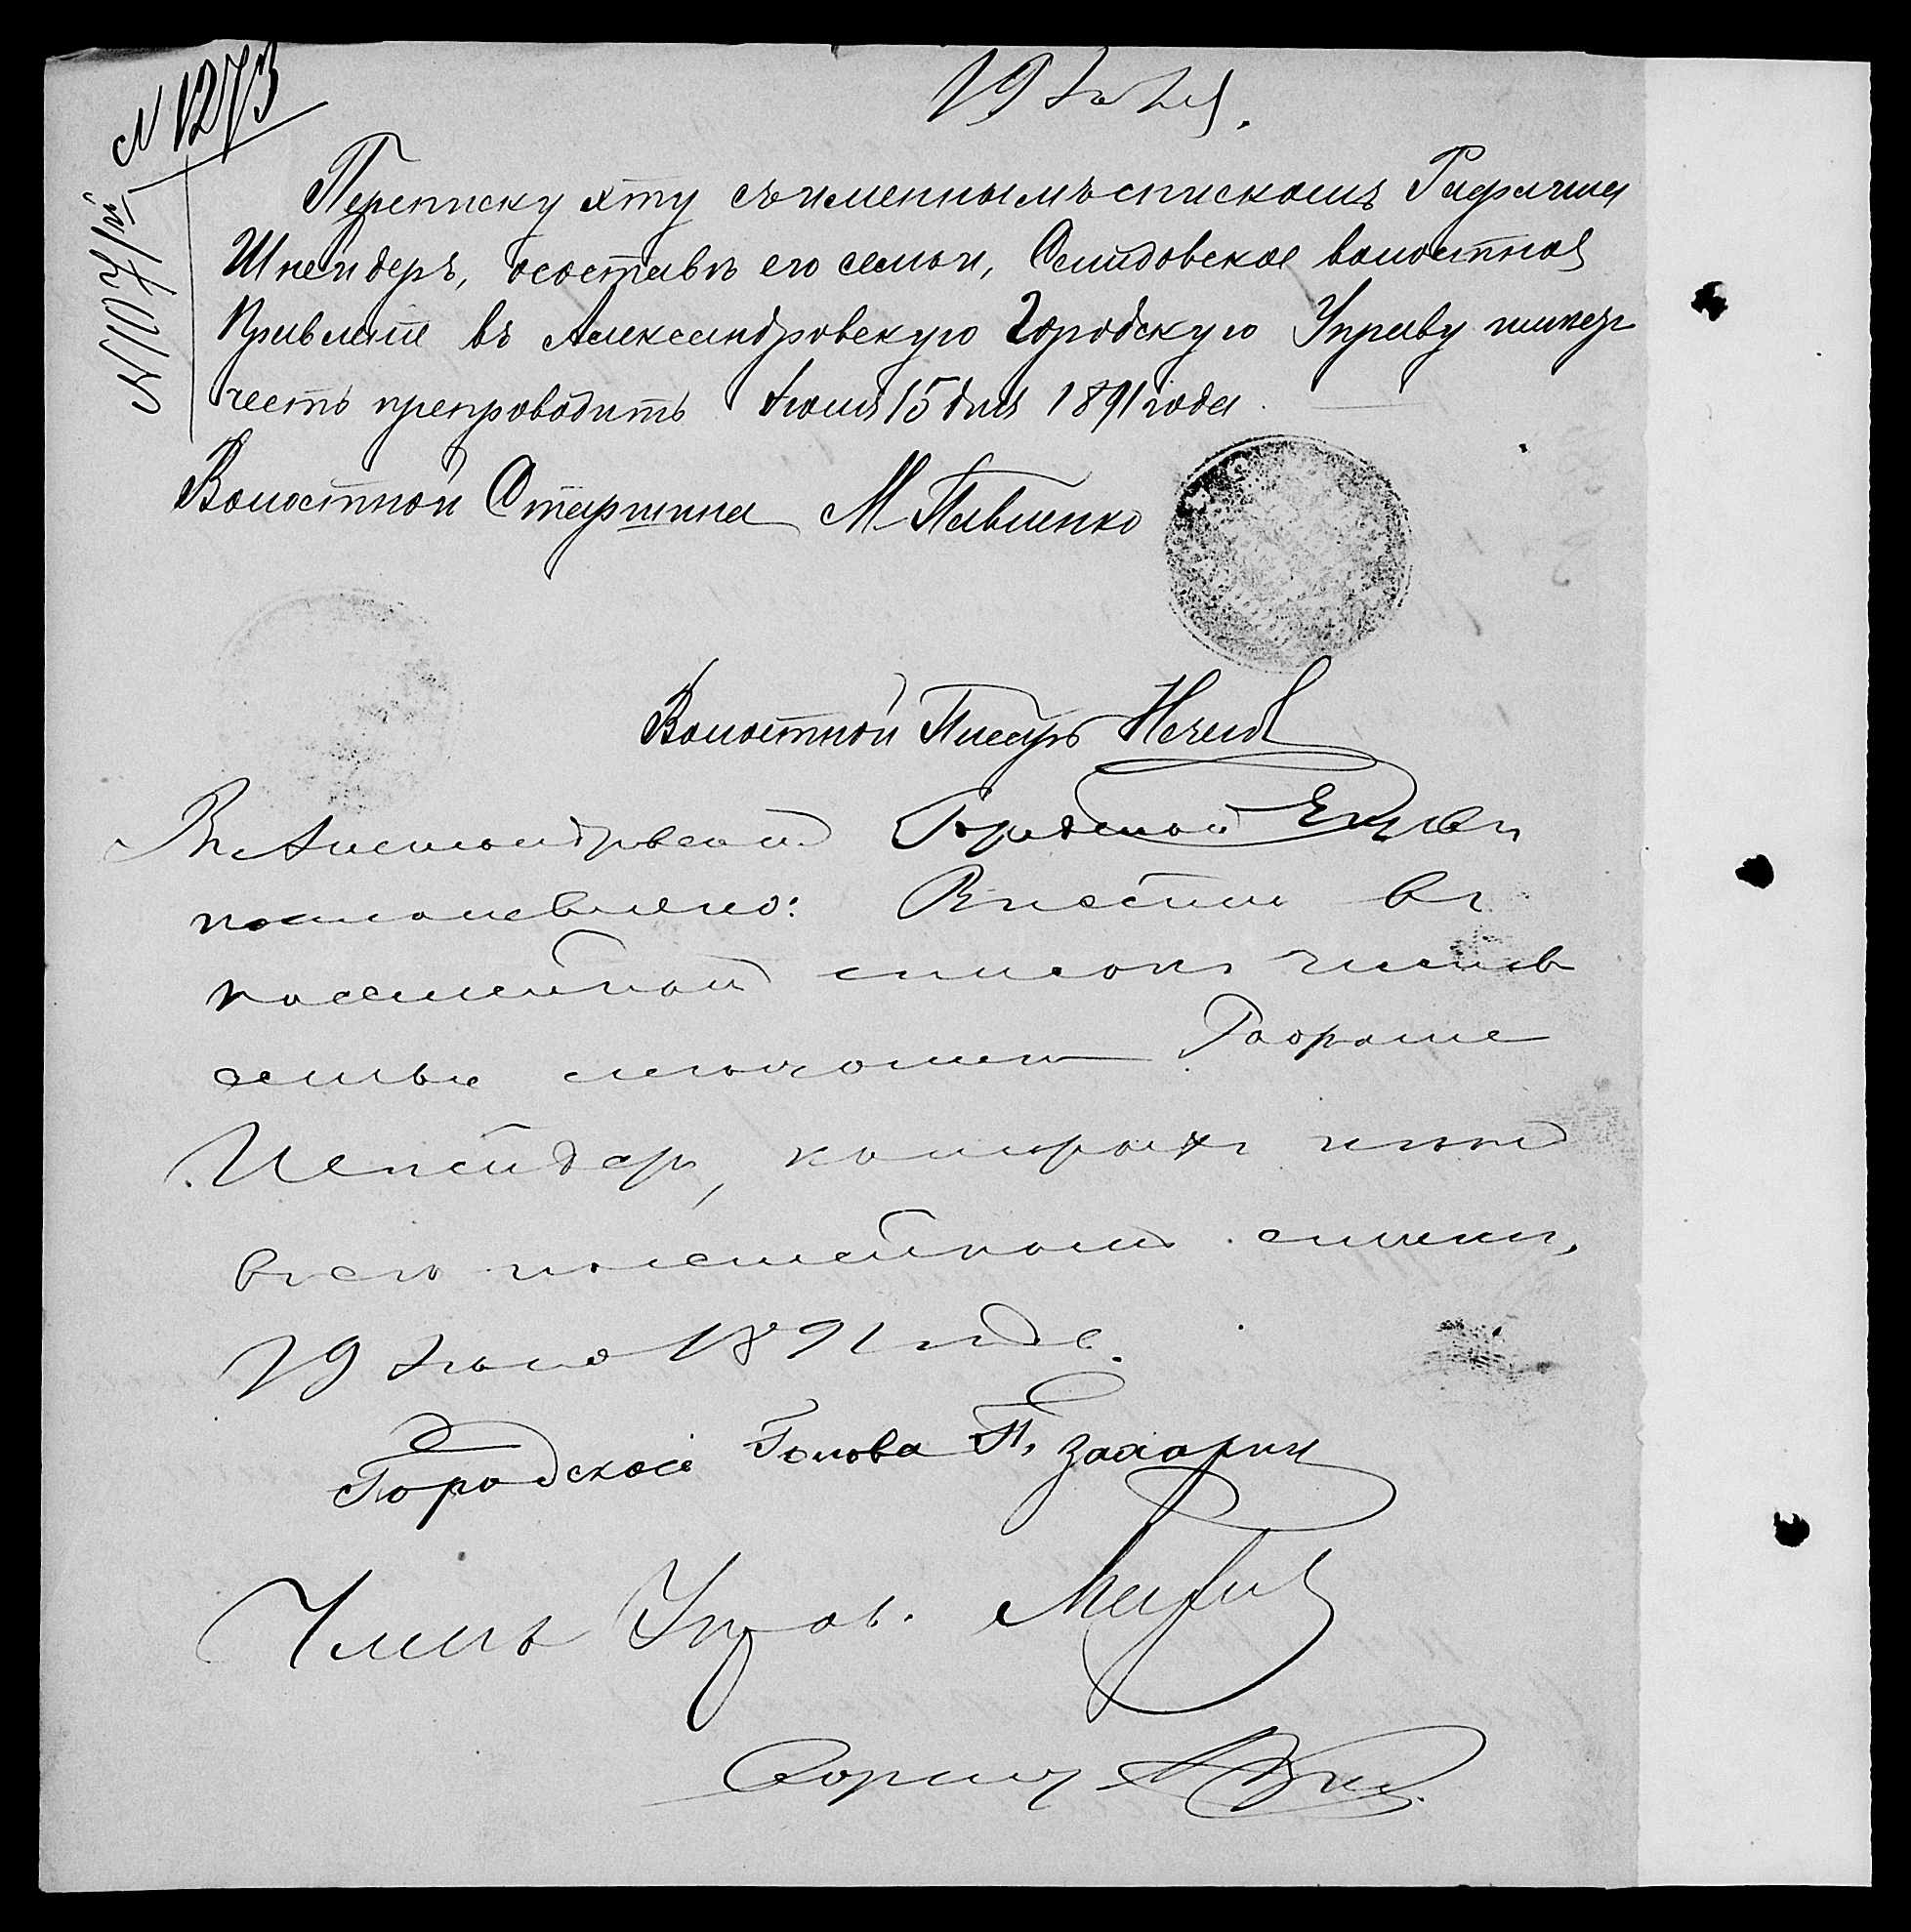 19 Іюля.
№ 1273
№ 1071/м
Переписку эту съ именнымъ спискомъ Рафаила
Шнейдеръ, о составѣ его семьи, волостное
Правленіе въ Александровскую Городскую Управу имѣетъ
честь препроводить Іюля 15 дня 1891 года
Волостной Старшина М Павленко
Волостной Писарь
Въ Александровской Городской Управѣ
постановлено: Внести въ
посемейной списокъ членовъ
семьи Рафаила
Шнейдеръ, которыхъ
посемейномъ спискѣ,
19 Іюля 1891 года.
Городской Голова П. Захарин
Членъ Управ.